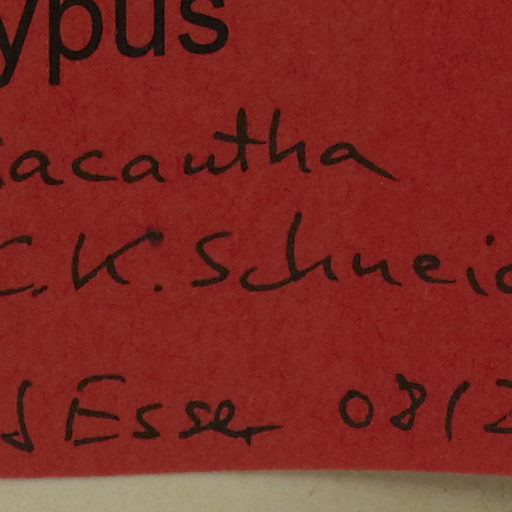 ypus
iacantha
C.K. Schneid
d Esser 08/2